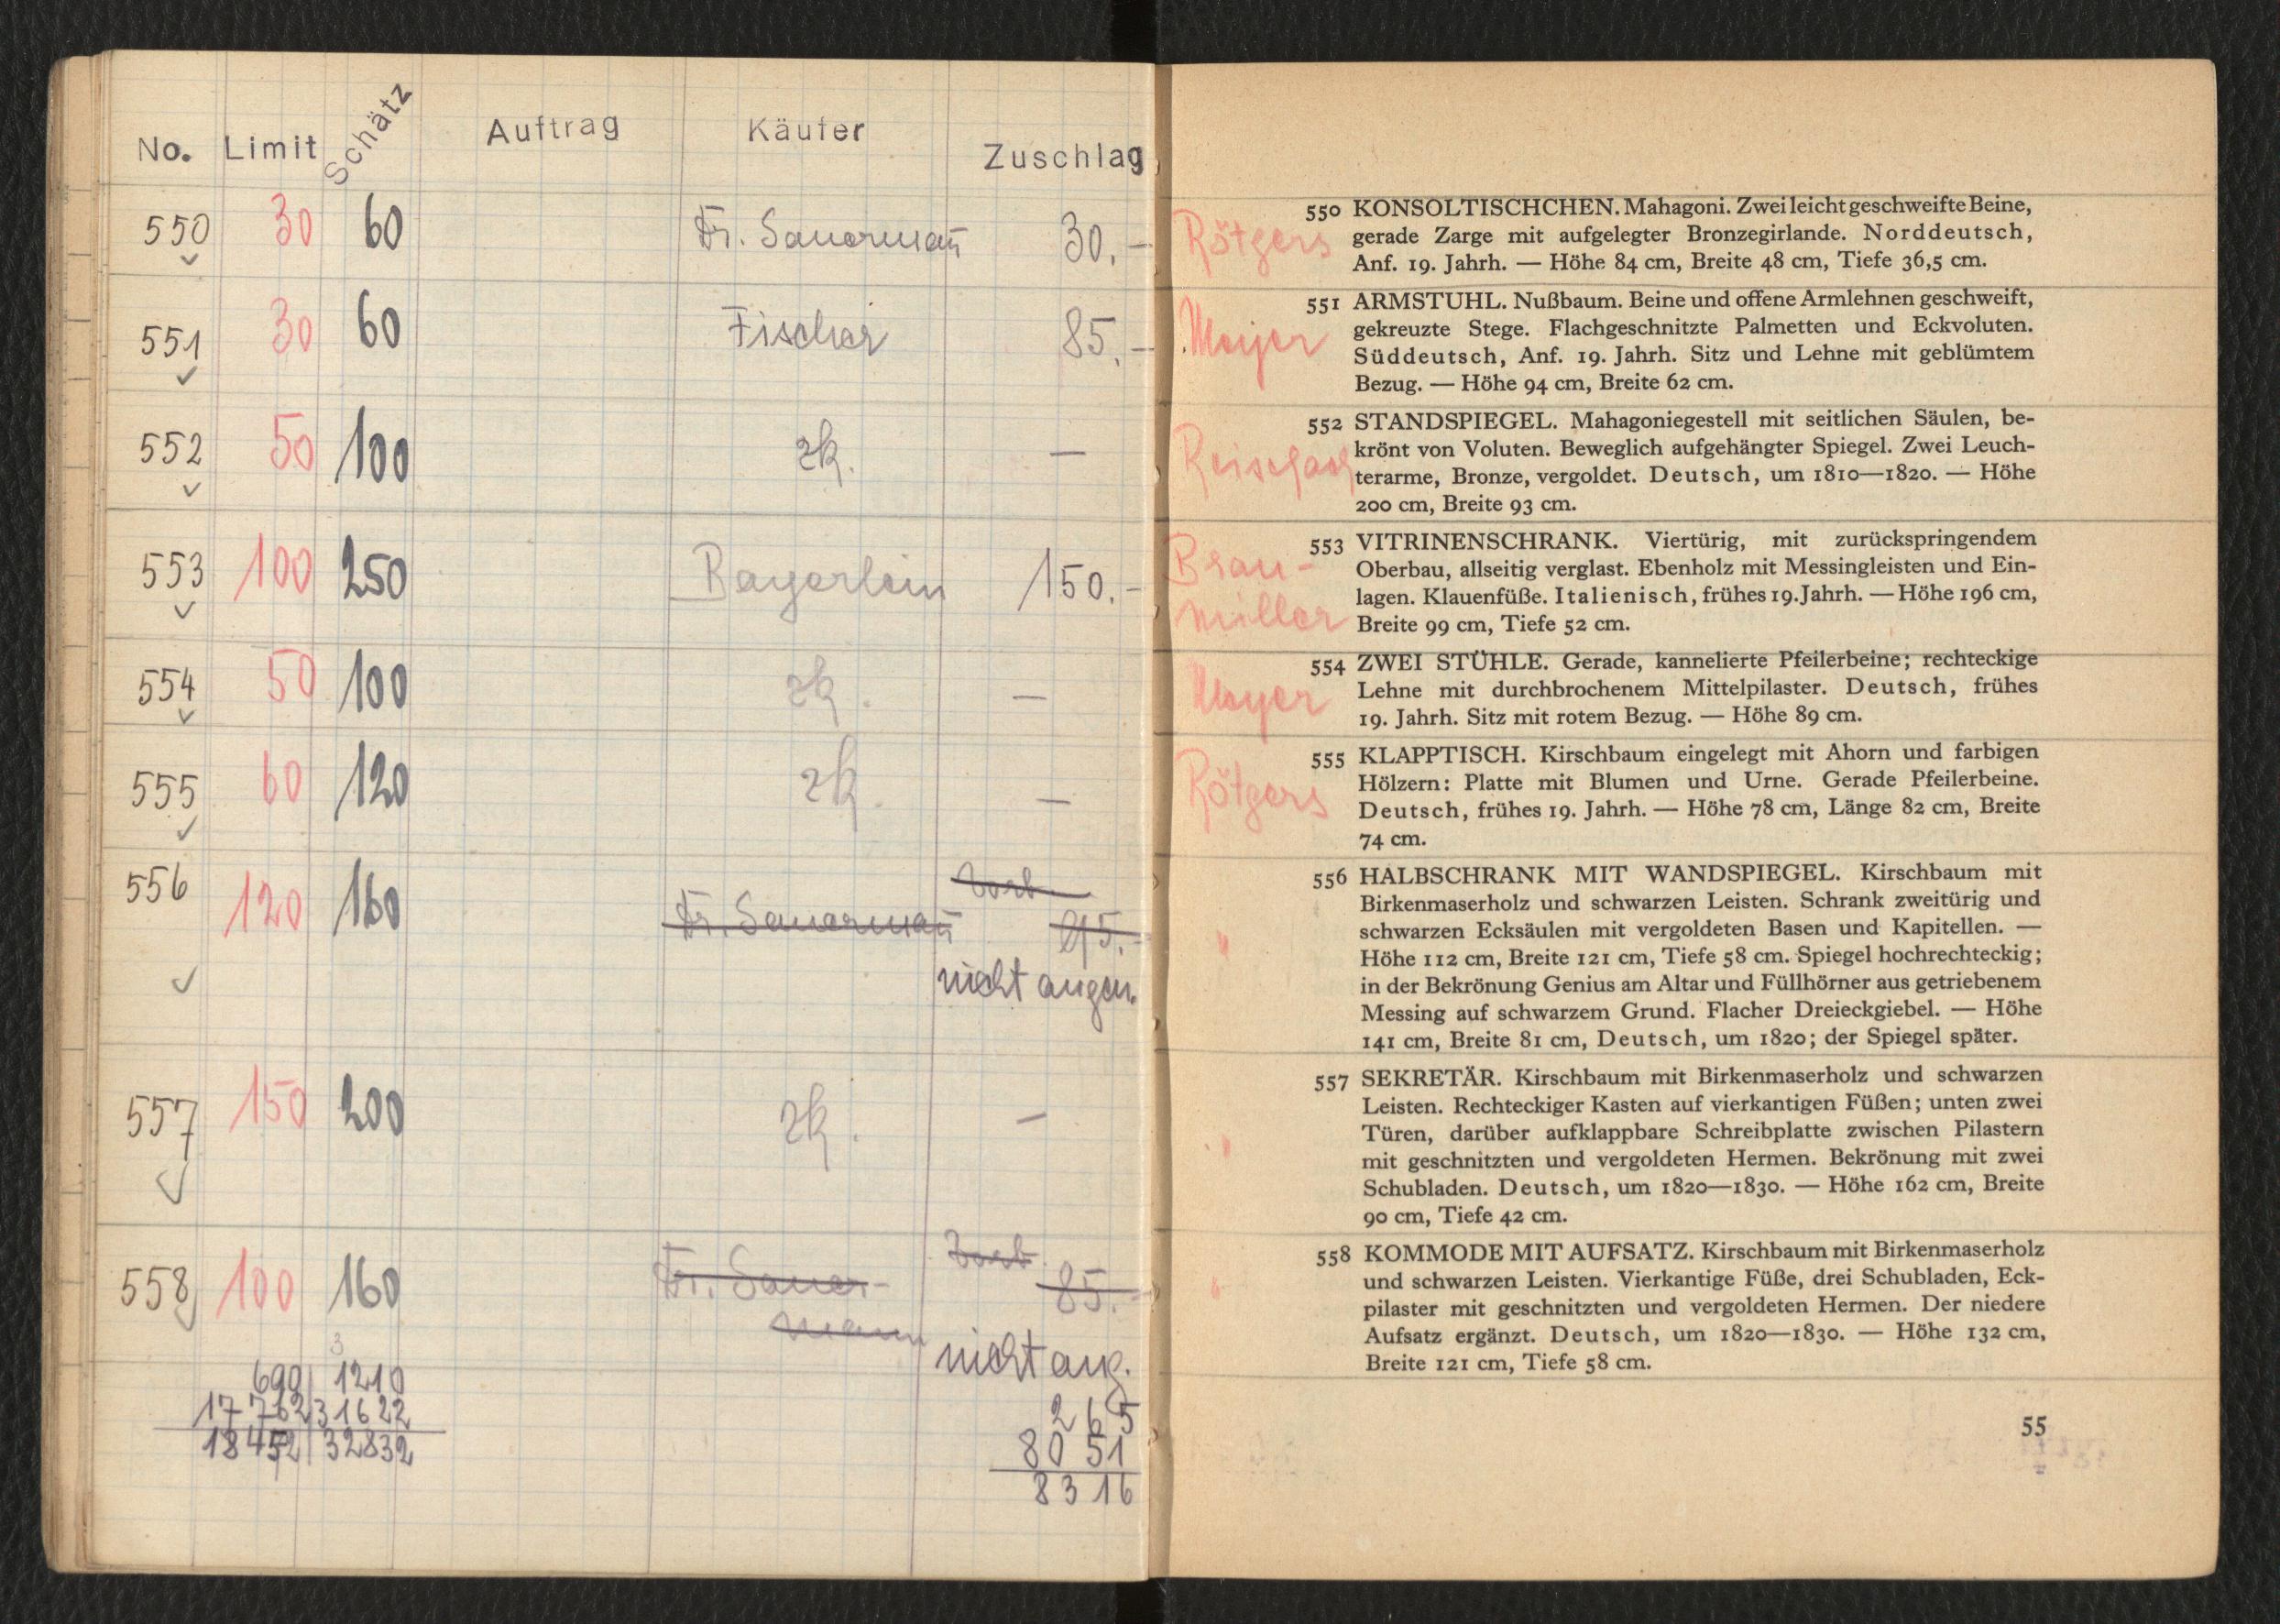 No. Limit Schätz Auftrag Käufer Zuschlag
550 30 60 Fr. Sauermañ 30.–
551 30 60 Fischer 85.–
552 50 100 zk. —
553 100 250 Bayerlein 150.–
554 50 100 zk. —
555 60 120 zk. —
556 120 160 Fr. Sauermañ 95.–
nicht angen.
557 150 200 zk. —
558 100 160 Fr. Sauer-
mann
85.–
nicht ang.
690 1210
17 762 31622
18452 32832
265
8051
8316
Rötgers
550 KONSOLTISCHCHEN. Mahagoni. Zwei leicht geschweifte Beine,
gerade Zarge mit aufgelegter Bronzegirlande. Norddeutsch,
Anf. 19. Jahrh. — Höhe 84 cm, Breite 48 cm, Tiefe 36,5 cm.
Mayer
551 ARMSTUHL. Nußbaum. Beine und offene Armlehnen geschweift,
gekreuzte Stege. Flachgeschnitzte Palmetten und Eckvoluten.
Süddeutsch, Anf. 19. Jahrh. Sitz und Lehne mit geblümtem
Bezug. — Höhe 94 cm, Breite 62 cm.
552 STANDSPIEGEL. Mahagoniegestell mit seitlichen Säulen, be-
krönt von Voluten. Beweglich aufgehängter Spiegel. Zwei Leuch-
terarme, Bronze, vergoldet. Deutsch, um 1810—1820. — Höhe
200 cm, Breite 93 cm.
Brau-
miller
553 VITRINENSCHRANK. Viertürig, mit zurückspringendem
Oberbau, allseitig verglast. Ebenholz mit Messingleisten und Ein-
lagen. Klauenfüße. Italienisch, frühes 19. Jahrh. — Höhe 196 cm,
Breite 99 cm, Tiefe 52 cm.
Mayer
554 ZWEI STÜHLE. Gerade, kannelierte Pfeilerbeine; rechteckige
Lehne mit durchbrochenem Mittelpilaster. Deutsch, frühes
19. Jahrh. Sitz mit rotem Bezug. — Höhe 89 cm.
Rötgers
555 KLAPPTISCH. Kirschbaum eingelegt mit Ahorn und farbigen
Hölzern: Platte mit Blumen und Urne. Gerade Pfeilerbeine.
Deutsch, frühes 19. Jahrh. — Höhe 78 cm, Länge 82 cm, Breite
74 cm.
"
556 HALBSCHRANK MIT WANDSPIEGEL. Kirschbaum mit
Birkenmaserholz und schwarzen Leisten. Schrank zweitürig und
schwarzen Ecksäulen mit vergoldeten Basen und Kapitellen. —
Höhe 112 cm, Breite 121 cm, Tiefe 58 cm. Spiegel hochrechteckig;
in der Bekrönung Genius am Altar und Füllhörner aus getriebenem
Messing auf schwarzem Grund. Flacher Dreieckgiebel. — Höhe
141 cm, Breite 81 cm, Deutsch, um 1820; der Spiegel später.
"
557 SEKRETÄR. Kirschbaum mit Birkenmaserholz und schwarzen
Leisten. Rechteckiger Kasten auf vierkantigen Füßen; unten zwei
Türen, darüber aufklappbare Schreibplatte zwischen Pilastern
mit geschnitzten und vergoldeten Hermen. Bekrönung mit zwei
Schubladen. Deutsch, um 1820—1830. — Höhe 162 cm, Breite
90 cm, Tiefe 42 cm.
"
558 KOMMODE MIT AUFSATZ. Kirschbaum mit Birkenmaserholz
und schwarzen Leisten. Vierkantige Füße, drei Schubladen, Eck-
pilaster mit geschnitzten und vergoldeten Hermen. Der niedere
Aufsatz ergänzt. Deutsch, um 1820—1830. — Höhe 132 cm,
Breite 121 cm, Tiefe 58 cm.
55